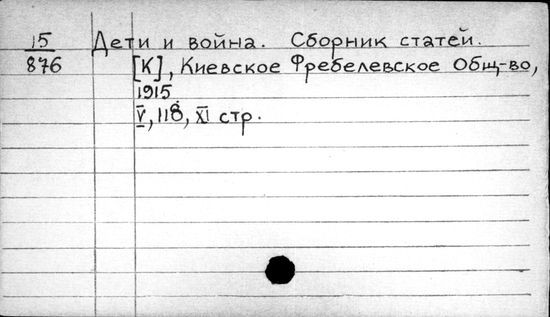 15 Дети и война. Сборник статей.
876 [К], Киевское Фребелевское Общ-во,
1915
V, 118, XI стр.